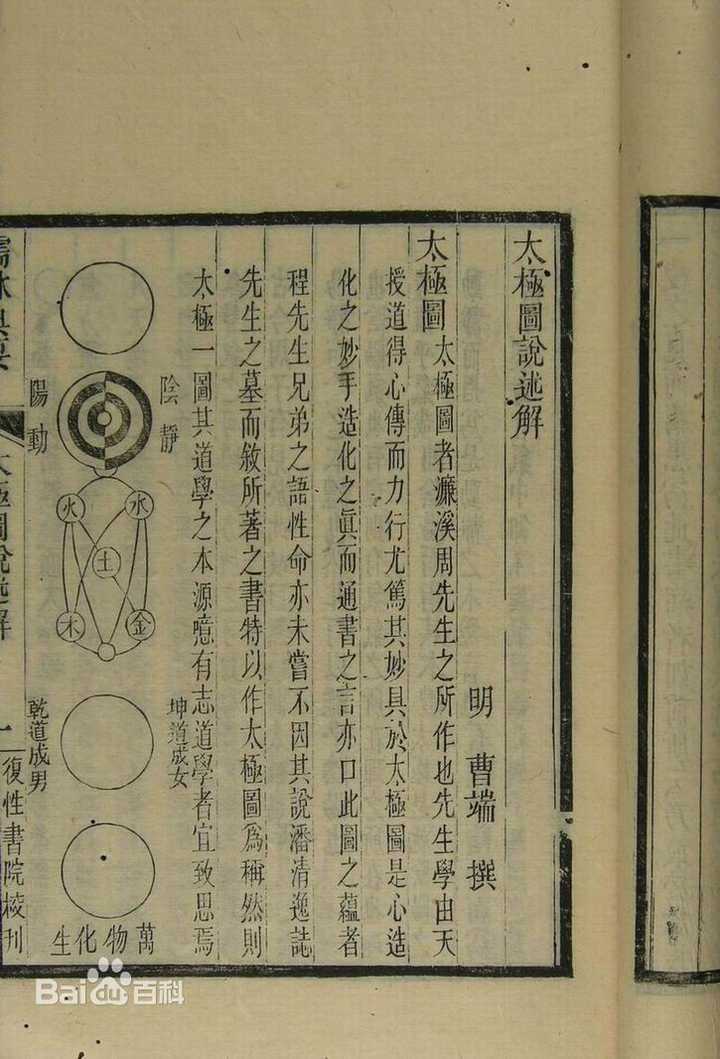 太極圖說述解
明 曹端 撰
太極圖 太極圖者濂溪周先生之所作也先生學由天
授道得心傳而力行尤篤其妙具於太極圖是心造
化之妙手造化之真而通書之言亦口此圖之蘊者
程先生兄弟之語性命亦未嘗不因其說潘清逸誌
先生之墓而敘所著之書特以作太極圖為稱然則
太極一圖其道學之本源噫有志道學者宜致思焉
陰靜
陽動
火
水
土
木
金
坤道成女
乾道成男
萬物化生
太極圖說述解
復性書院校刊
Bai du 百科